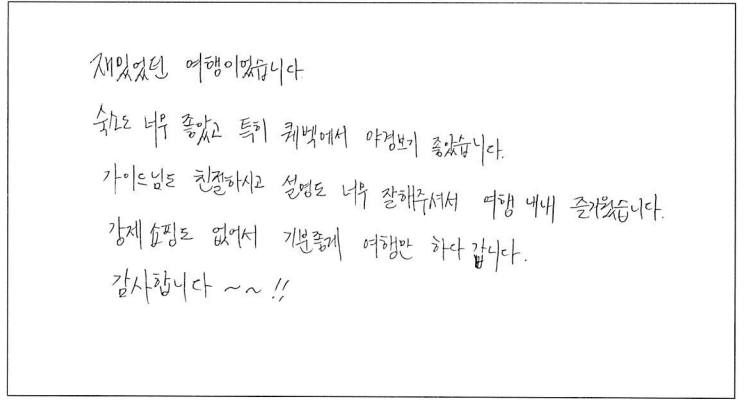 재밌었던 여행이었습니다.
숙소도 너무 좋았고 특히 퀘벡에서 야경보기 좋았습니다.
가이드님도 친절하시고 설명도 너무 잘해주셔서 여행 내내 즐거웠습니다.
강제쇼핑도 없어서 기분좋게 여행만 하다 갑니다.
감사합니다 ~~!!